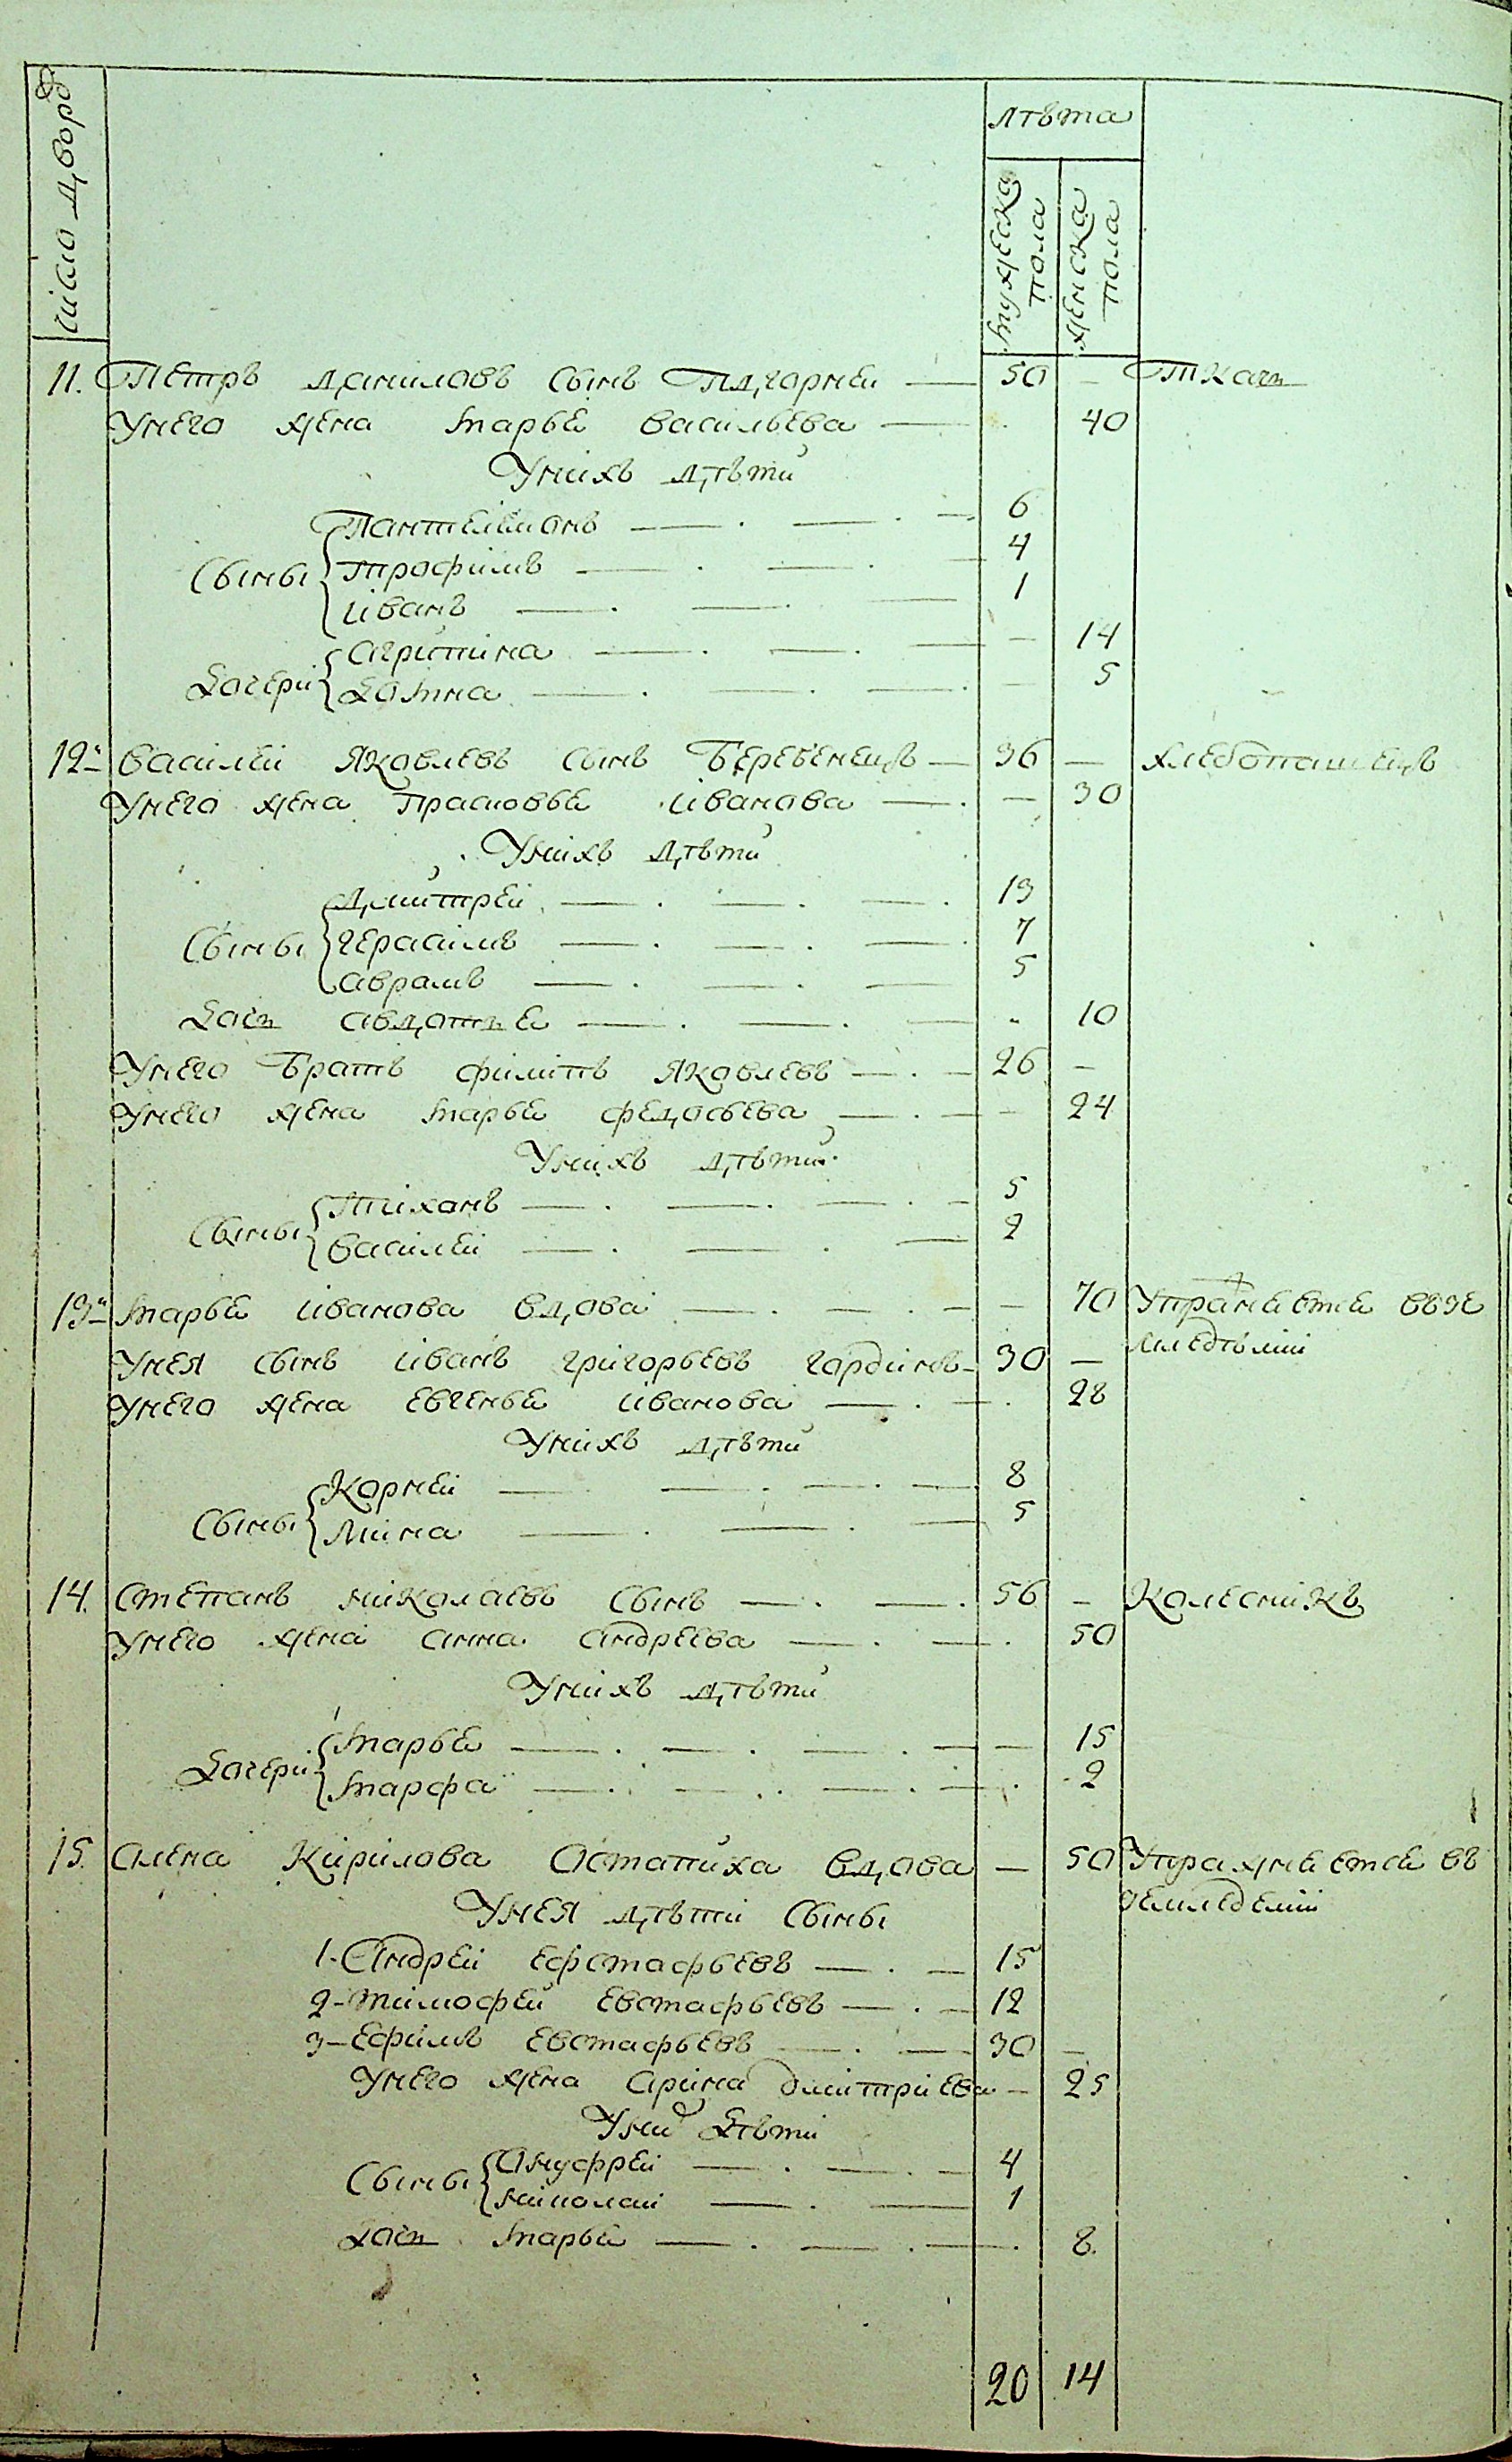 число дворо
лѣта
мужеска пола
женска пола
11. Петръ даниловъ сынъ Пдгорней 50 — Ткачь
Унего жена марье васильева 40
Унихъ дѣти
Пантелемонъ 6
Сыны трофимъ 4
иванъ 1
агрипина — 14
Дочери домна — 5
12 василей Яковлевъ сынъ Беребенецъ 36 — хлебопашецъ
Унего жена прасковье иванова — 30
Унихъ дѣти
Дмитрей 13
Сыны герасимъ 7
аврамъ 5
Дочь авдотье 10
Унего братъ филипъ Яковлевъ 26 —
Унего жена марье федосьева — 24
Унихъ дѣти
Тихонъ 5
Сыны василей 2
13 марье иванова вдова — 70 Упражнеетсе ввзе
Унея сынъ иванъ григорьевъ гординъ 30 — мледѣлии
Унего жена евгенье иванова 28
Унихъ дѣти
Корней 8
Сыны Мина 5
14. Степанъ николаевъ сынъ 56 — Колесникъ
Унего жена анна андреева 50
Унихъ дѣти
марье — 15
Дочери марфа 2
15. алена Кирилова Остапиха вдова — 50 Упражнеетсе въ
Унея дѣти сыны земледелии
1. Андрей ефстафьевъ 15
2 - тимофей евстафьевъ 12
3 — ефимъ евстафьевъ 30 —
Унего жена арина дмитриева — 25
Уних дѣти
Ануфрей 4
Сыны николаи 1
Дочь марье 8.
20 14